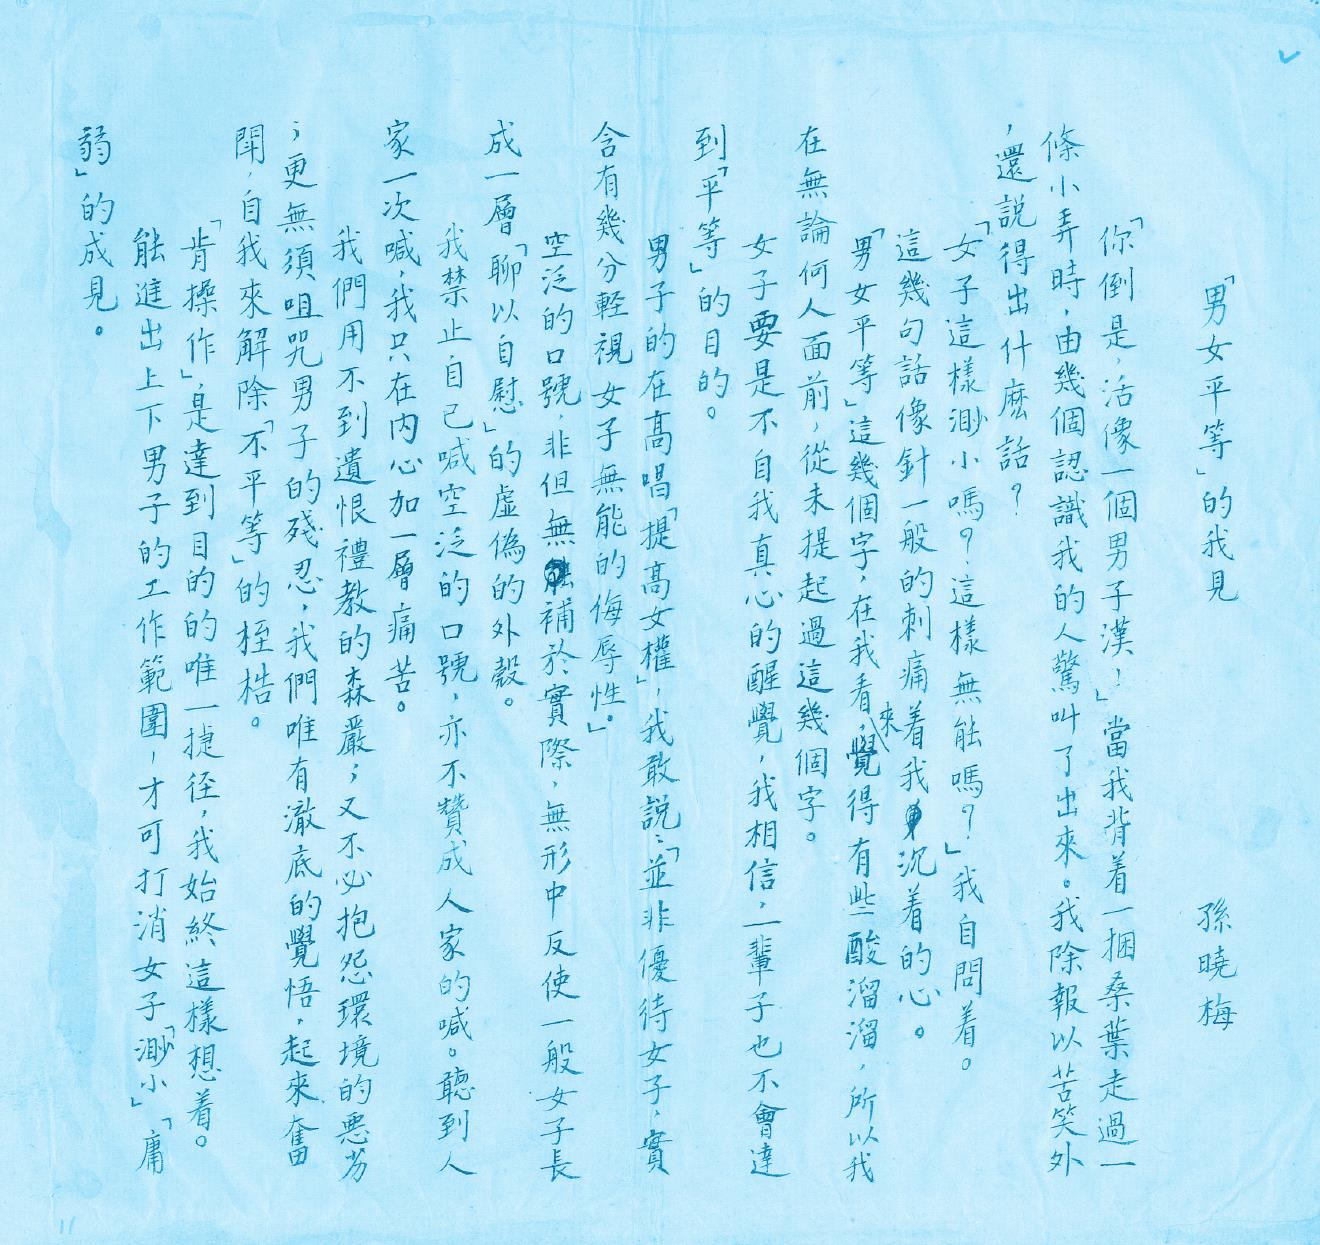 「男女平等」的我見　孫曉梅
「你倒是，活像一個男子漢！」當我背着一捆桑葉走過一
條小弄時，由幾個認識我的人驚叫了出來。我除報以苦笑外
，還說得出什麽話？
「女子這樣渺小嗎？這樣無能嗎？」我自問着。
這幾句話像針一般的刺痛着我沉着的心。
「男女平等」這幾個字，在我看來，覺得有些酸溜溜，所以我
在無論何人面前，從未提起過這幾個字。
女子要是不自我真心的醒覺，我相信，一輩子也不會達
到「平等」的目的。
男子的在高唱「提高女權」，我敢說：「並非優待女子，實
含有幾分輕視女子無能的侮辱性。」
空泛的口號，非但無補於實際，無形中反使一般女子長
成一層「聊以自慰」的虛偽的外殼。
我禁止自已喊空泛的口號，亦不贊成人家的喊。聽到人
家一次喊，我只在內心加一層痛苦。
我們用不到遺恨禮教的森嚴；又不必抱怨環境的惡劣
；更無須咀咒男子的殘忍，我們唯有澈底的覺悟，起來奮
鬥，自我來解除「不平等」的桎梏。
「肯操作」，是達到目的的唯一捷徑，我始終這樣想着。
能進出上下男子的工作範圍，才可打消女子「渺小」「庸
弱」的成見。
11